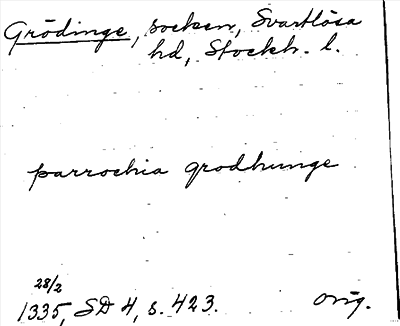 Grödinge, socken, Svartlösa
hd, Stockh. l.
parrochia grodhunge
28/2
1335, SD 4, s. 423. orig.